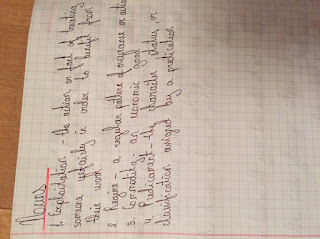 Nouns
1. Exploitation - the action or fact of treating
someone unfairly in order to benefit from
their work
2. Regime - a regular pattern of occurence or action
3. Commodity - an economic good
4. Predicament - the character, status, or
classification assigned by a predication